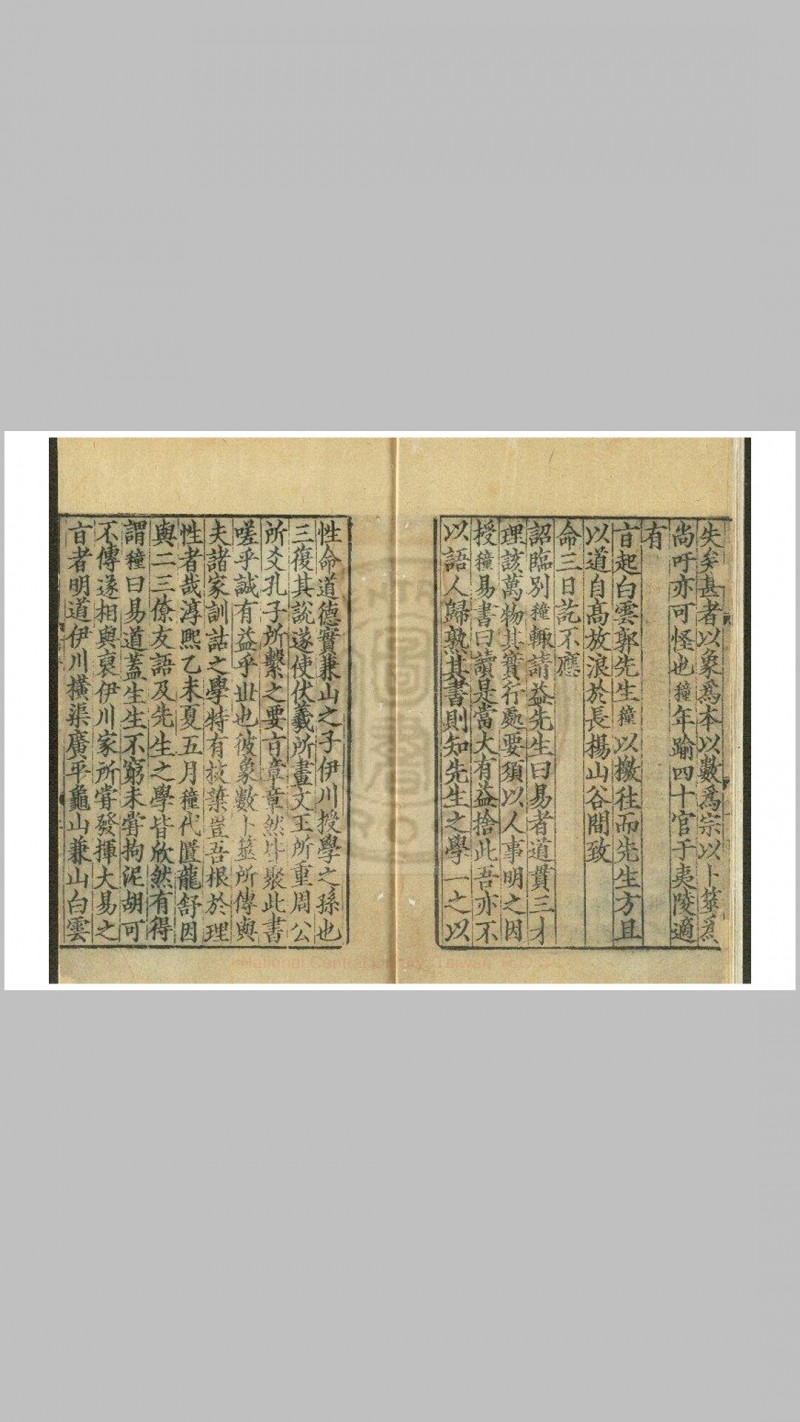 失矣甚者以象爲本以數爲宗以卜筮爲
尚吁亦可怪也穜年踰四十官于夷陵適
有
㫖起白雲郭先生穜以檄往而先生方且
以道自髙放浪於長楊山谷間致
命三日訖不應
詔臨別穜輙請益先生曰易者道貫三才
理該萬物其實行處要須以人事明之因
授穜易書曰讀是當大有益捨此吾亦不
以語人歸熟其書則知先生之學一之以
性命道德實兼山之子伊川授學之孫也
三復其説遂使伏羲所畫文王所重周公
所爻孔子所繫之要㫖章章然畢聚此書
嗟乎誠有益乎丗也彼象數卜筮所傳與
夫諸家訓詁之學特有枝葉豈吾根於理
性者哉淳熙乙未夏五月穜代匱龍舒因
與二三僚友語及先生之學皆欣然有得
謂穜曰易道蓋生生不窮未甞拘泥胡可
不傳遂相與裒伊川家所甞發揮大易之
㫖者明道伊川橫渠廣平龜山兼山白雲